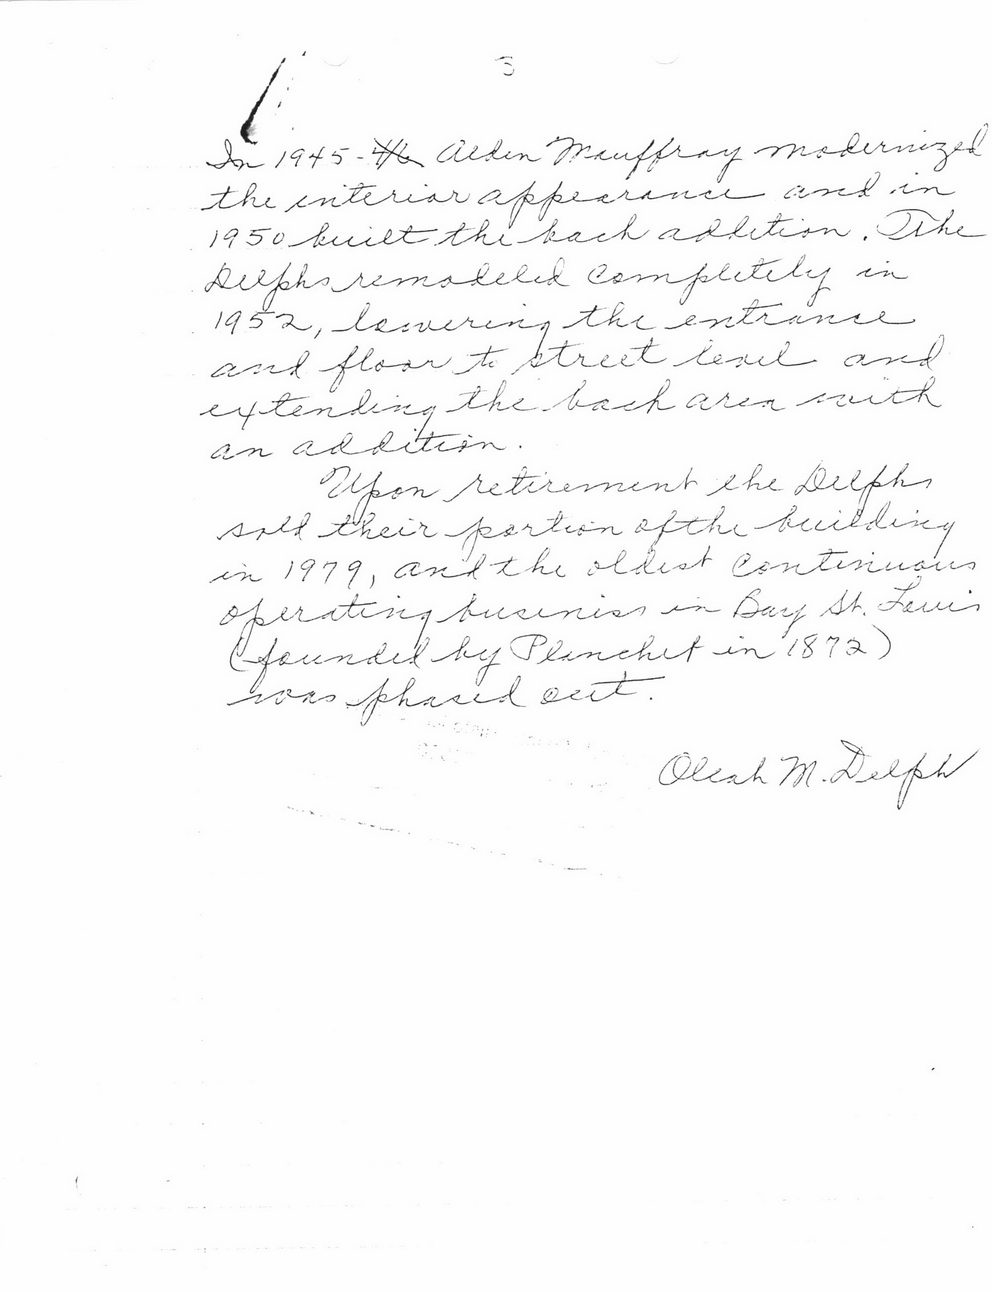 3
In 1945-46 Alden Mauffray modernized
the interior appearance and in
1950 built the back addition. The
Delphs remodeled completely in
1952, lowering the entrance
and floor to street level and
extending the back area with
an addition.
Upon retirement the Delphs
sold their portion of the building
in 1979, and the oldest continuous
operating business in Bay St. Louis
(founded by Planchet in 1872)
was phased out.
Oleah M. Delph